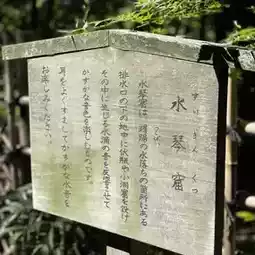 すいきんくつ
水琴窟
水琴窟は、蹲踞の水落ちの箇所にある
排水口の下の地中に伏瓶や小洞窟を設け
その中に生じる水滴の音を反響させて
かすかな音色を楽しむものです。
耳をよくすましてかすかな水音を
お楽しみください。